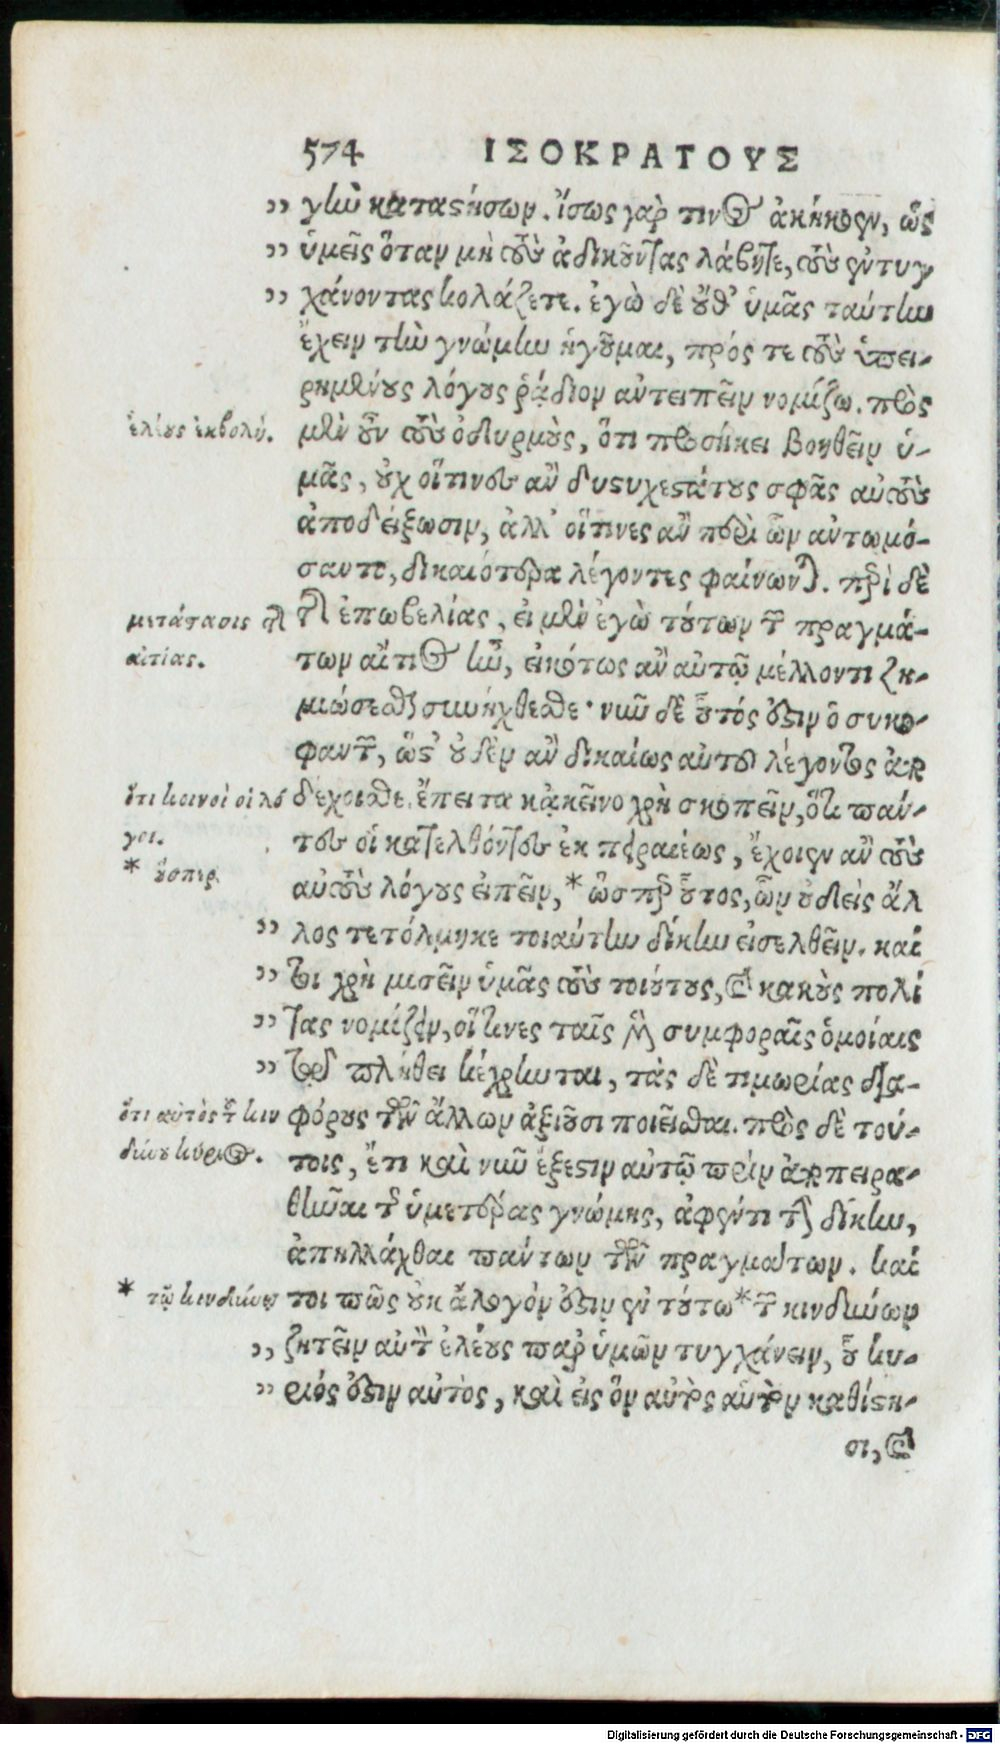 574 ΙΣΟΚΡΑΤΟΥΣ
,, γὴν καταστήσων. ἴσως γάρ τινος ἀκήκοεν, ὡς
,, ὑμεῖς ὅταν μὴ τοὺς ἀδικοῦντας λάβητε, τοὺς ἐντυγ
,, χάνοντας κολάζετε. ἐγὼ δὲ οὔθ' ὑμᾶς ταύτην
ἔχειν τὴν γνώμην ἡγοῦμαι, πρός τε τοὺς ὑπει-
ρημένους λόγους ῥᾴδιον ἀντειπεῖν νομίζω. πρὸς
ἐλέους ἐκβολή.
μὲν οὖν τοὺς ὀδυρμοὺς, ὅτι προσήκει βοηθεῖν ὑ-
μᾶς, οὐχ οἵτινες ἂν δυστυχεστάτους σφᾶς αὐτοὺς
ἀποδείξωσιν, ἀλλ' οἵτινες ἂν περὶ ὧν ἀντωμό-
σαντο, δικαιότερα λέγοντες φαίνωνται. περὶ δὲ
μετάστασις τῆς
τῆς ἐπωβελίας, εἰ μὲν ἐγὼ τούτων τῶν πραγμά-
αἰτίας.
των αἴτιος ἦν, εἰκότως ἂν αὐτῷ μέλλοντι ζη-
μιώσεσθαι συνήχθεσθε· νῦν δὲ οὗτός ἐστιν ὁ συκο-
φαντῶν, ὥστ' οὐδὲν ἂν δικαίως αὐτοῦ λέγοντος ἀπο
ὅτι κοινοὶ οἱ λό
δέχοισθε. ἔπειτα κἀκεῖνο χρὴ σκοπεῖν, ὅτι πάν-
γοι.
τες οἱ κατελθόντες ἐκ πειραιέως, ἔχοιεν ἂν τοὺς
* οὕσπερ.
αὐτοὺς λόγους εἰπεῖν, * ὥσπερ οὗτος, ὧν οὐδεὶς ἄλ
,, λος τετόλμηκε τοιαύτην δίκην εἰσελθεῖν. καί
,, τοι χρὴ μισεῖν ὑμᾶς τοὺς τοιούτους, καὶ κακοὺς πολί
,, τας νομίζειν, οἵτινες ταῖς μὲν συμφοραῖς ὁμοίαις
,, τῷ πλήθει κέχρηνται, τὰς δὲ τιμωρίας δια-
ὅτι αὐτὸς τοῦ κιν
φόρους τῶν ἄλλων ἀξιοῦσι ποιεῖσθαι. πρὸς δὲ τού-
δύνου κύριος.
τοις, ἔτι καὶ νῦν ἔξεστιν αὐτῷ πρὶν ἀποπειρα-
θῆναι τῆς ὑμετέρας γνώμης, ἀφέντι τὴν δίκην,
ἀπηλλάχθαι πάντων τῶν πραγμάτων. καί
* τῷ κινδύνῳ
τοι πῶς οὐκ ἄλογόν ἐστιν ἐν τούτῳ * τῶν κινδύνων
,, ζητεῖν αὐτὸν ἐλέους παρ' ὑμῶν τυγχάνειν, οὗ κύ-
,, ριός ἐστιν αὐτὸς, καὶ εἰς ὃν αὐτὸς αὑτὸν καθίστη-
σι, καὶ
Digitalisierung gefördert durch die Deutsche Forschungsgemeinschaft - DFG